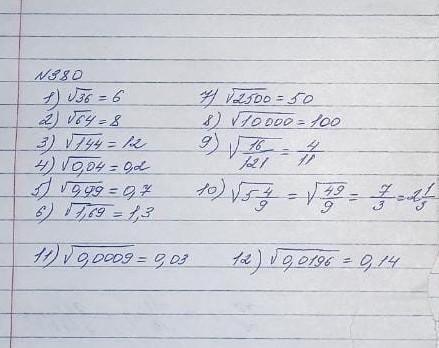 №380
1) √36 = 6
2) √64 = 8
3) √144 = 12
4) √0,04 = 0,2
5) √0,49 = 0,7
6) √1,69 = 1,3
7) √2500 = 50
8) √10000 = 100
9) √16/121 = 4/11
10) √5 4/9 = √49/9 = 7/3 = 2 1/3
11) √0,0009 = 0,03
12) √0,0196 = 0,14